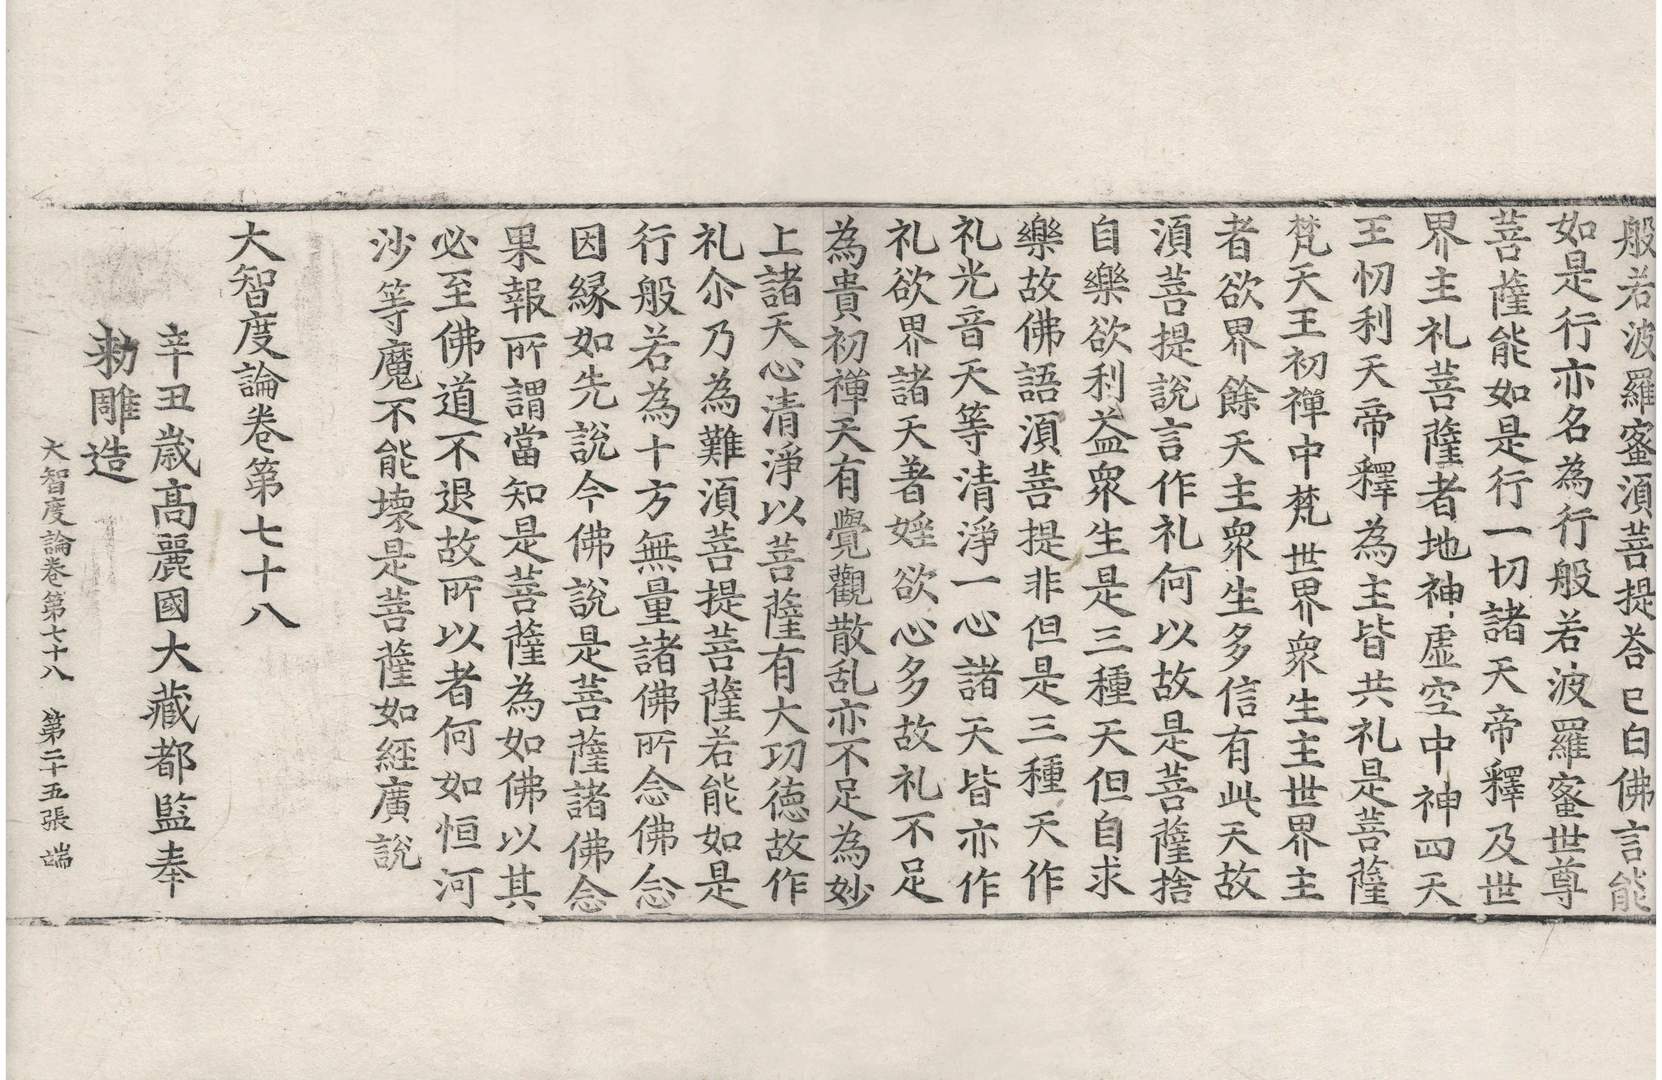 般若波羅蜜湏菩提荅已白佛言能
如是行亦名為行般若波羅蜜世尊
菩薩能如是行一切諸天帝釋及世
界主礼菩薩者地神虛空中神四天
王忉利天帝釋為主皆共礼是菩薩
梵天王初禪中梵世界衆生主世界主
者欲界餘天主衆生多信有此天故
湏菩提說言作礼何以故是菩薩捨
自樂欲利益衆生是三種天但自求
樂故佛語湏菩提非但是三種天作
礼光音天等清淨一心諸天皆亦作
礼欲界諸天著婬欲心多故礼不足
為貴初禪天有覺觀散乱亦不足為妙
上諸天心清淨以菩薩有大功德故作
礼尒乃為難湏菩提菩薩若能如是
行般若為十方無量諸佛所念佛念
因緣如先說今佛說是菩薩諸佛念
果報所謂當知是菩薩為如佛以其
必至佛道不退故所以者何如恒河
沙等魔不能壞是菩薩如經廣說
大智度論卷第七十八
辛丑歲高麗國大藏都監奉
勑雕造
大智度論卷第七十八 第二十五張 端